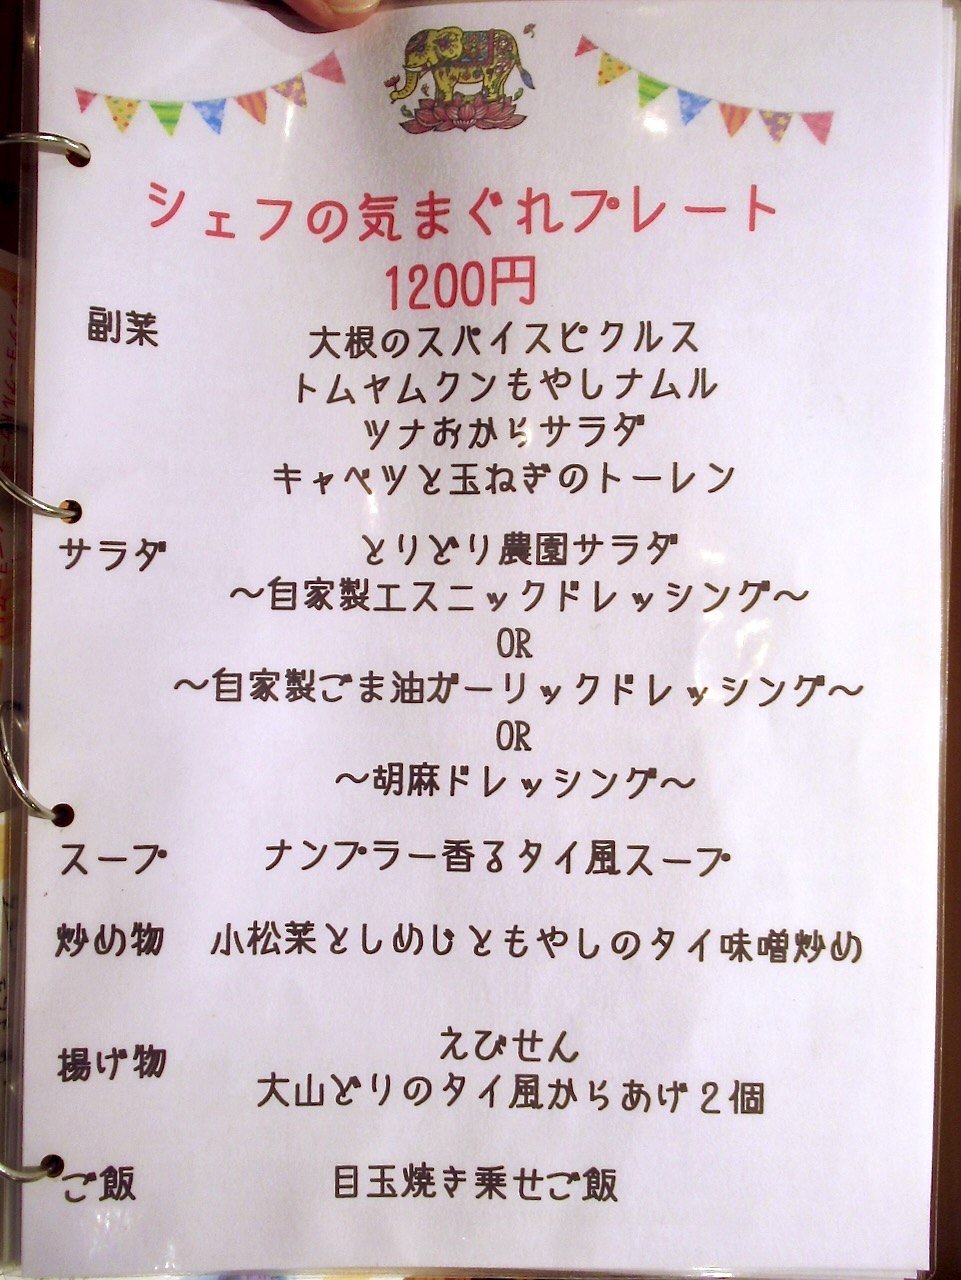 シェフの気まぐれプレート
1200円
副菜
大根のスパイスピクルス
トムヤムクンもやしナムル
ツナおからサラダ
キャベツと玉ねぎのトーレン
サラダ
とりどり農園サラダ
～自家製エスニックドレッシング～
OR
～自家製ごま油ガーリックドレッシング～
OR
～胡麻ドレッシング～
スープ
ナンプラー香るタイ風スープ
炒め物
小松菜としめじともやしのタイ味噌炒め
揚げ物
えびせん
大山どりのタイ風からあげ２個
ご飯
目玉焼き乗せご飯